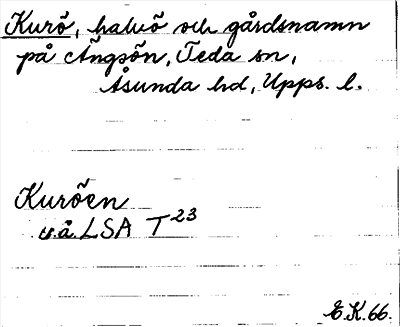 Kurö, halvö och gårdsnamn
på Ängsön, Teda sn,
Åsunda hd, Upps. l.
Kuröen
u.å. LSA T 23
E.K. 66.